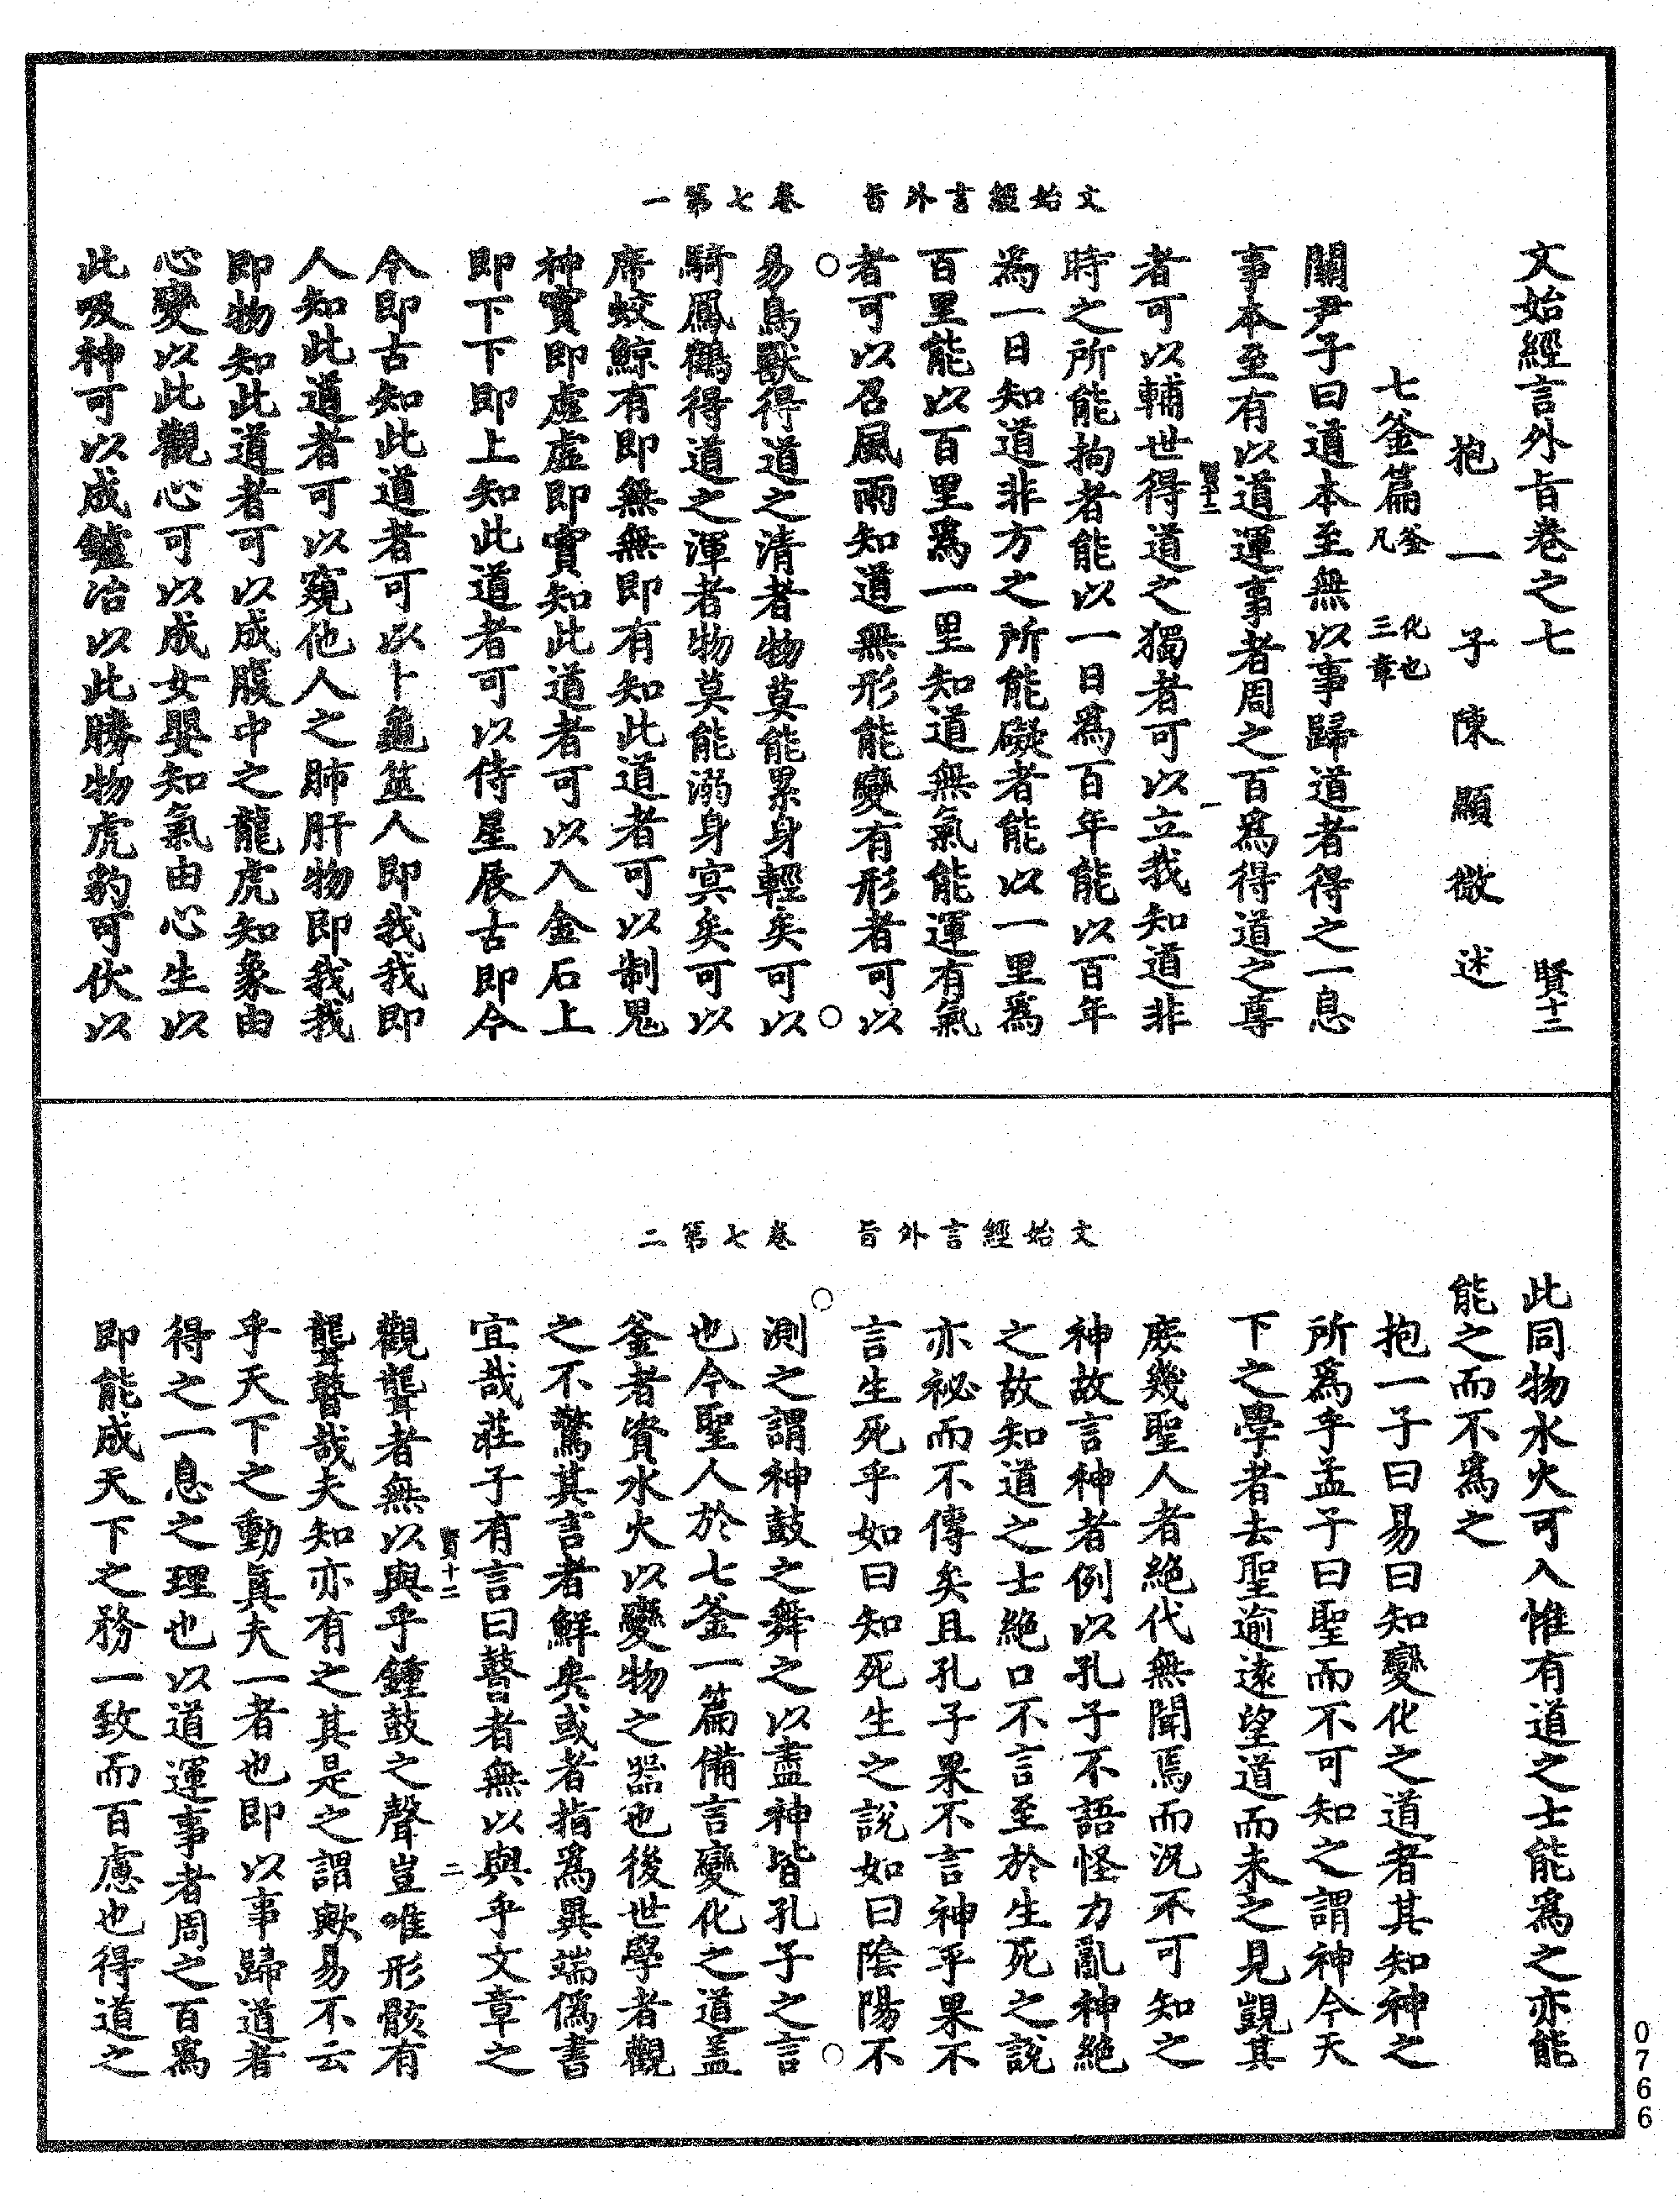 文始經言外旨　卷七第一
文始經言外旨卷之七　賢十二
抱一子陳顯微述
七釜篇釜化也凡三章
關尹子曰道本至無以事歸道者得之一息
事本至有以道運事者周之百為得道之尊
賢十二　一
者可以輔世得道之獨者可以立我知道非
時之所能拘者能以一日為百年能以百年
為一日知道非方之所能礙者能以一里為
百里能以百里為一里知道無氣能運有氣
者可以召風雨知道無形能變有形者可以
易鳥獸得道之清者物莫能累身輕矣可以
騎鳳鶴得道之渾者物莫能溺身冥矣可以
席蛟鯨有即無無即有知此道者可以制鬼
神實即虛虛即實知此道者可以入金石上
即下下即上知此道者可以侍星辰古即今
今即古知此道者可以卜龜筮人即我我即
人知此道者可以窺他人之肺肝物即我我
即物知此道者可以成腹中之龍虎知象由
心變以此觀心可以成女嬰知氣由心生以
此吸神可以成鑪冶以此勝物虎豹可伏以
文始經言外旨　卷七第二
此同物水火可入惟有道之士能為之亦能
能之而不為之
抱一子曰易曰知變化之道者其知神之
所為乎孟子曰聖而不可知之謂神今天
下之學者去聖逾遠望道而未之見覬其
庶幾聖人者絕代無聞焉而況不可知之
神故言神者例以孔子不語怪力亂神絕
之故知道之士絕口不言至於生死之說
亦祕而不傳矣且孔子果不言神乎果不
言生死乎如曰知死生之說如曰陰陽不
測之謂神鼓之舞之以盡神皆孔子之言
也今聖人於七釜一篇備言變化之道蓋
釜者資水火以變物之器也後世學者觀
之不驚其言者鮮矣或者指為異端偽書
宜哉莊子有言曰瞽者無以與乎文章之
賢十二　二
觀聾者無以與乎鍾鼓之聲豈唯形骸有
聾瞽哉夫知亦有之其是之謂歟易不云
乎天下之動貞夫一者也即以事歸道者
得之一息之理也以道運事者周之百為
即能成天下之務一致而百慮也得道之
0766